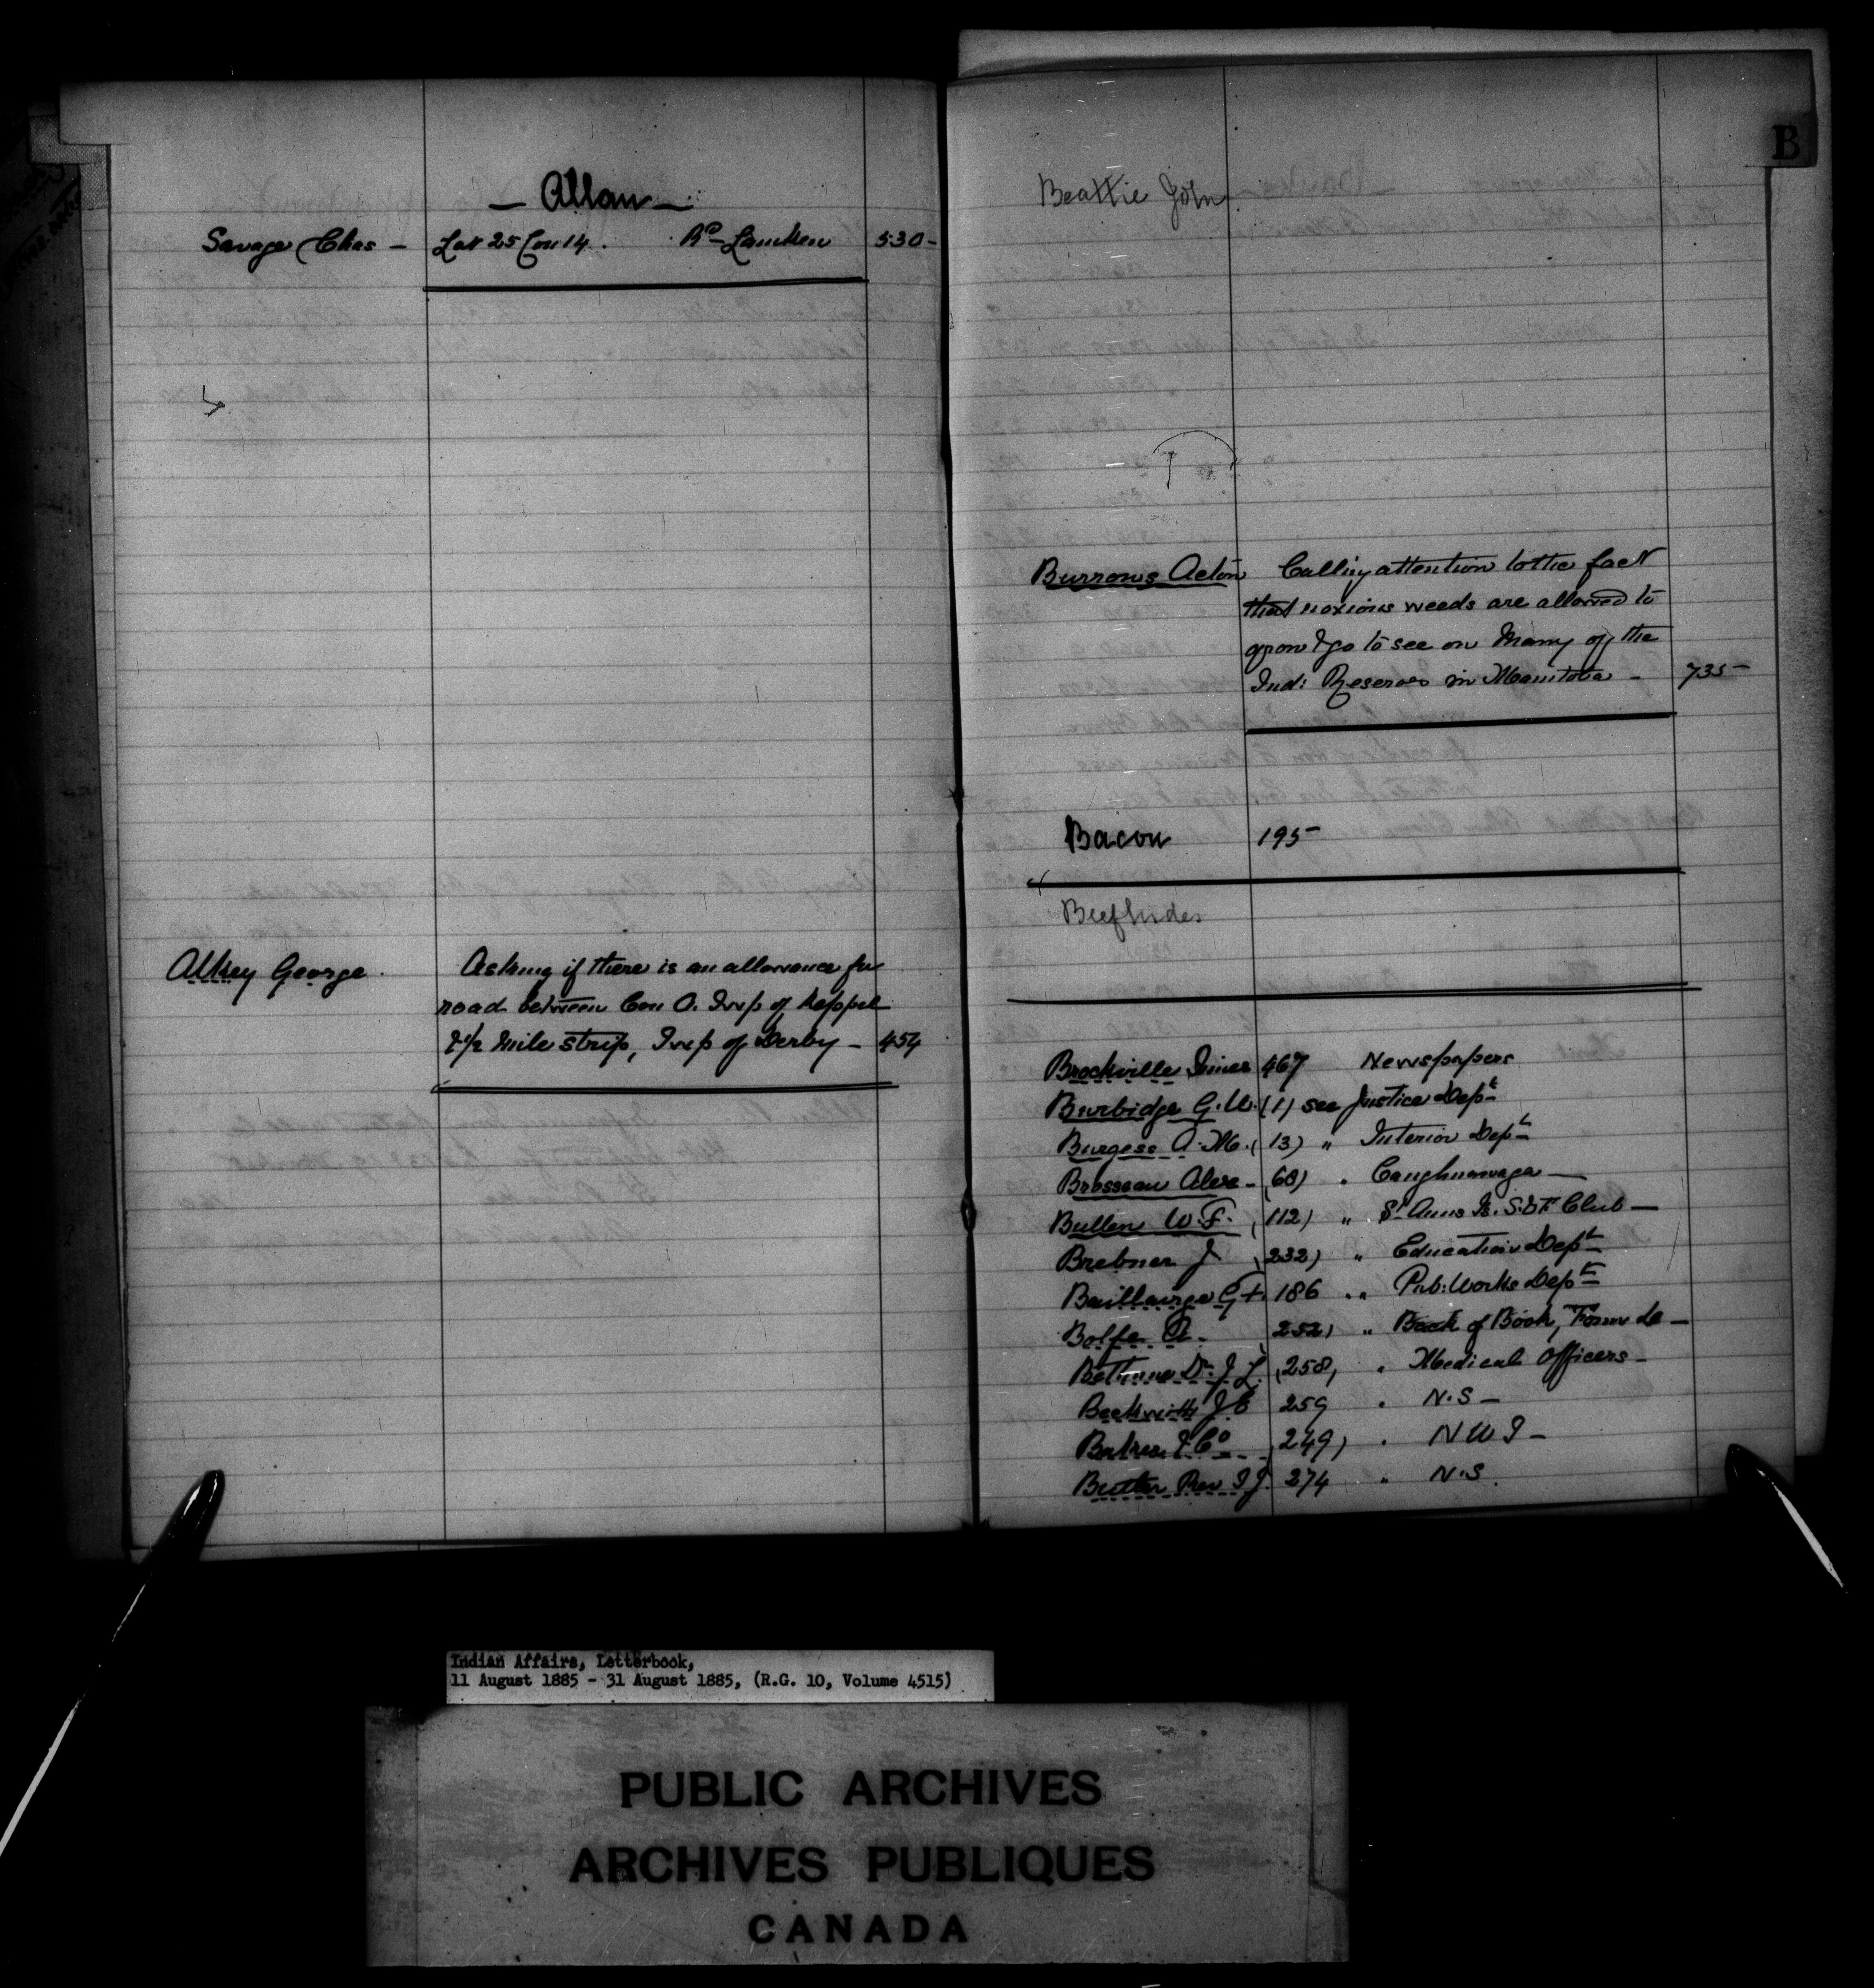 — Allan —
Savage Chas — Lot 25 Con 14. Rd Lancken 530 —
Alkey George. Asking if there is an allowance for
road between Con O. Twp of Keppel
& 1/2 mile strip, Twp of Derby — 454
B
Beattie John
Burrows Acton Calling attention to the fact
that noxious weeds are allowed to
grow & go to seed on many of the
Ind: Reserves in Manitoba — 735 —
Bacon 195 —
Beef hides
Brockville Times 467 Newspapers
Burbidge G. W. (1) see Justice Dept
Burgess A. M. (13) " Interior Dept
Brosseau Alex — (68) " Caughnawaga —
Bullen W. F. (112) " St. Anns Is. S. & F. Club —
Brebner J (232) " Education Dept
Baillairge G F. 186 " Pub: Works Dept
Bolfe A. (252) " Book, Form &c —
Bethune Dr. J. L. (258) " Medical Officers —
Beckwith J E 259 " N. S —
Baker & Co (249) " N W T —
Butler Rev T J. 274 " N. S.
Indian Affairs, Letterbook,
11 August 1885 - 31 August 1885, (R.G. 10, Volume 4515)
PUBLIC ARCHIVES
ARCHIVES PUBLIQUES
CANADA